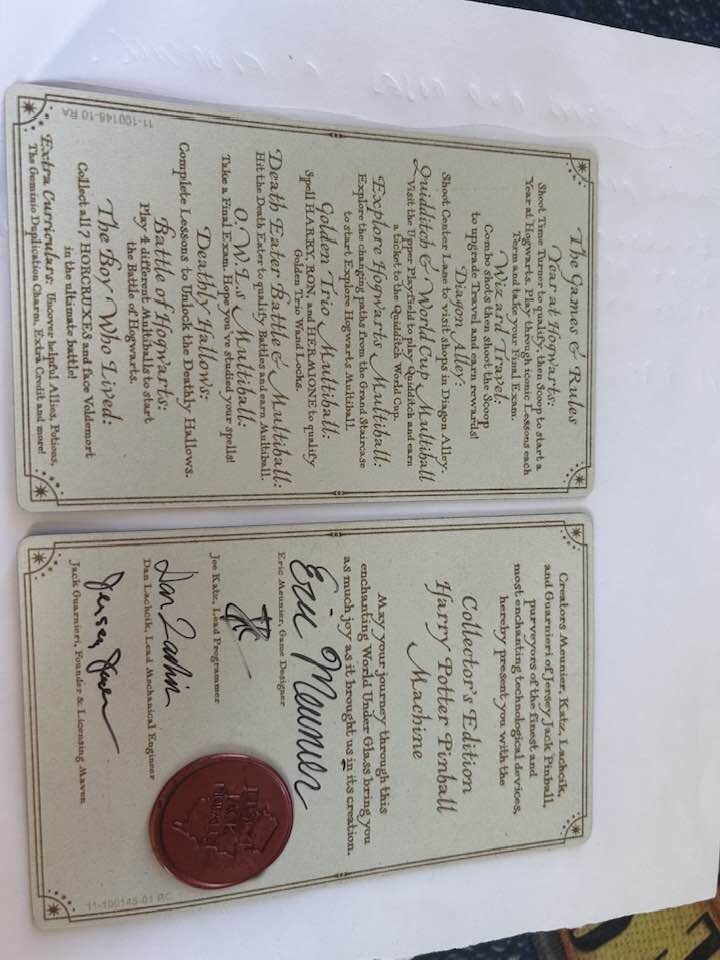 The Games & Rules
Year at Hogwarts:
Shoot Time Turner to qualify, then Scoop to start a
Year at Hogwarts. Play through iconic Lessons each
Term and take your Final Exam.
Wizard Travel:
Combo shots then shoot the Scoop
to upgrade Travel and earn rewards!
Diagon Alley:
Shoot Center Lane to visit shops in Diagon Alley.
Quidditch & World Cup Multiball
Visit the Upper Playfield to play Quidditch and earn
a ticket to the Quidditch World Cup.
Explore Hogwarts Multiball:
Explore the changing paths from the Grand Staircase
to start Explore Hogwarts Multiball.
Golden Trio Multiball:
Spell HARRY, RON, and HERMIONE to qualify
Golden Trio Wand Locks.
Death Eater Battle & Multiball:
Hit the Death Eater to qualify Battles and earn Multiball.
O.W.L.s Multiball:
Take a Final Exam. Hope you've studied your spells!
Deathly Hallows:
Complete Lessons to Unlock the Deathly Hallows.
Battle of Hogwarts:
Play 4 different Multiballs to start
the Battle of Hogwarts.
The Boy Who Lived:
Collect all 7 HORCRUXES and face Voldemort
in the ultimate battle!
Extra Curriculars: Uncover helpful Allies, Potions,
The Geminio Duplication Charm, Extra Credit and more!
11-100145-10 RA
Creators Meunier, Katz, Lachcik,
and Guarnieri of Jersey Jack Pinball,
purveyors of the finest and
most enchanting technological devices,
hereby present you with the
Collector's Edition
Harry Potter Pinball
Machine
May your journey through this
enchanting World Under Glass bring you
as much joy as it brought us in its creation.
Eric Meunier
Eric Meunier, Game Designer
JK
Joe Katz, Lead Programmer
Dan Lachcik, Lead Mechanical Engineer
Jack Guarnieri, Founder & Licensing Maven
JERSEY
JACK
PINBALL
11-100145-01 RC